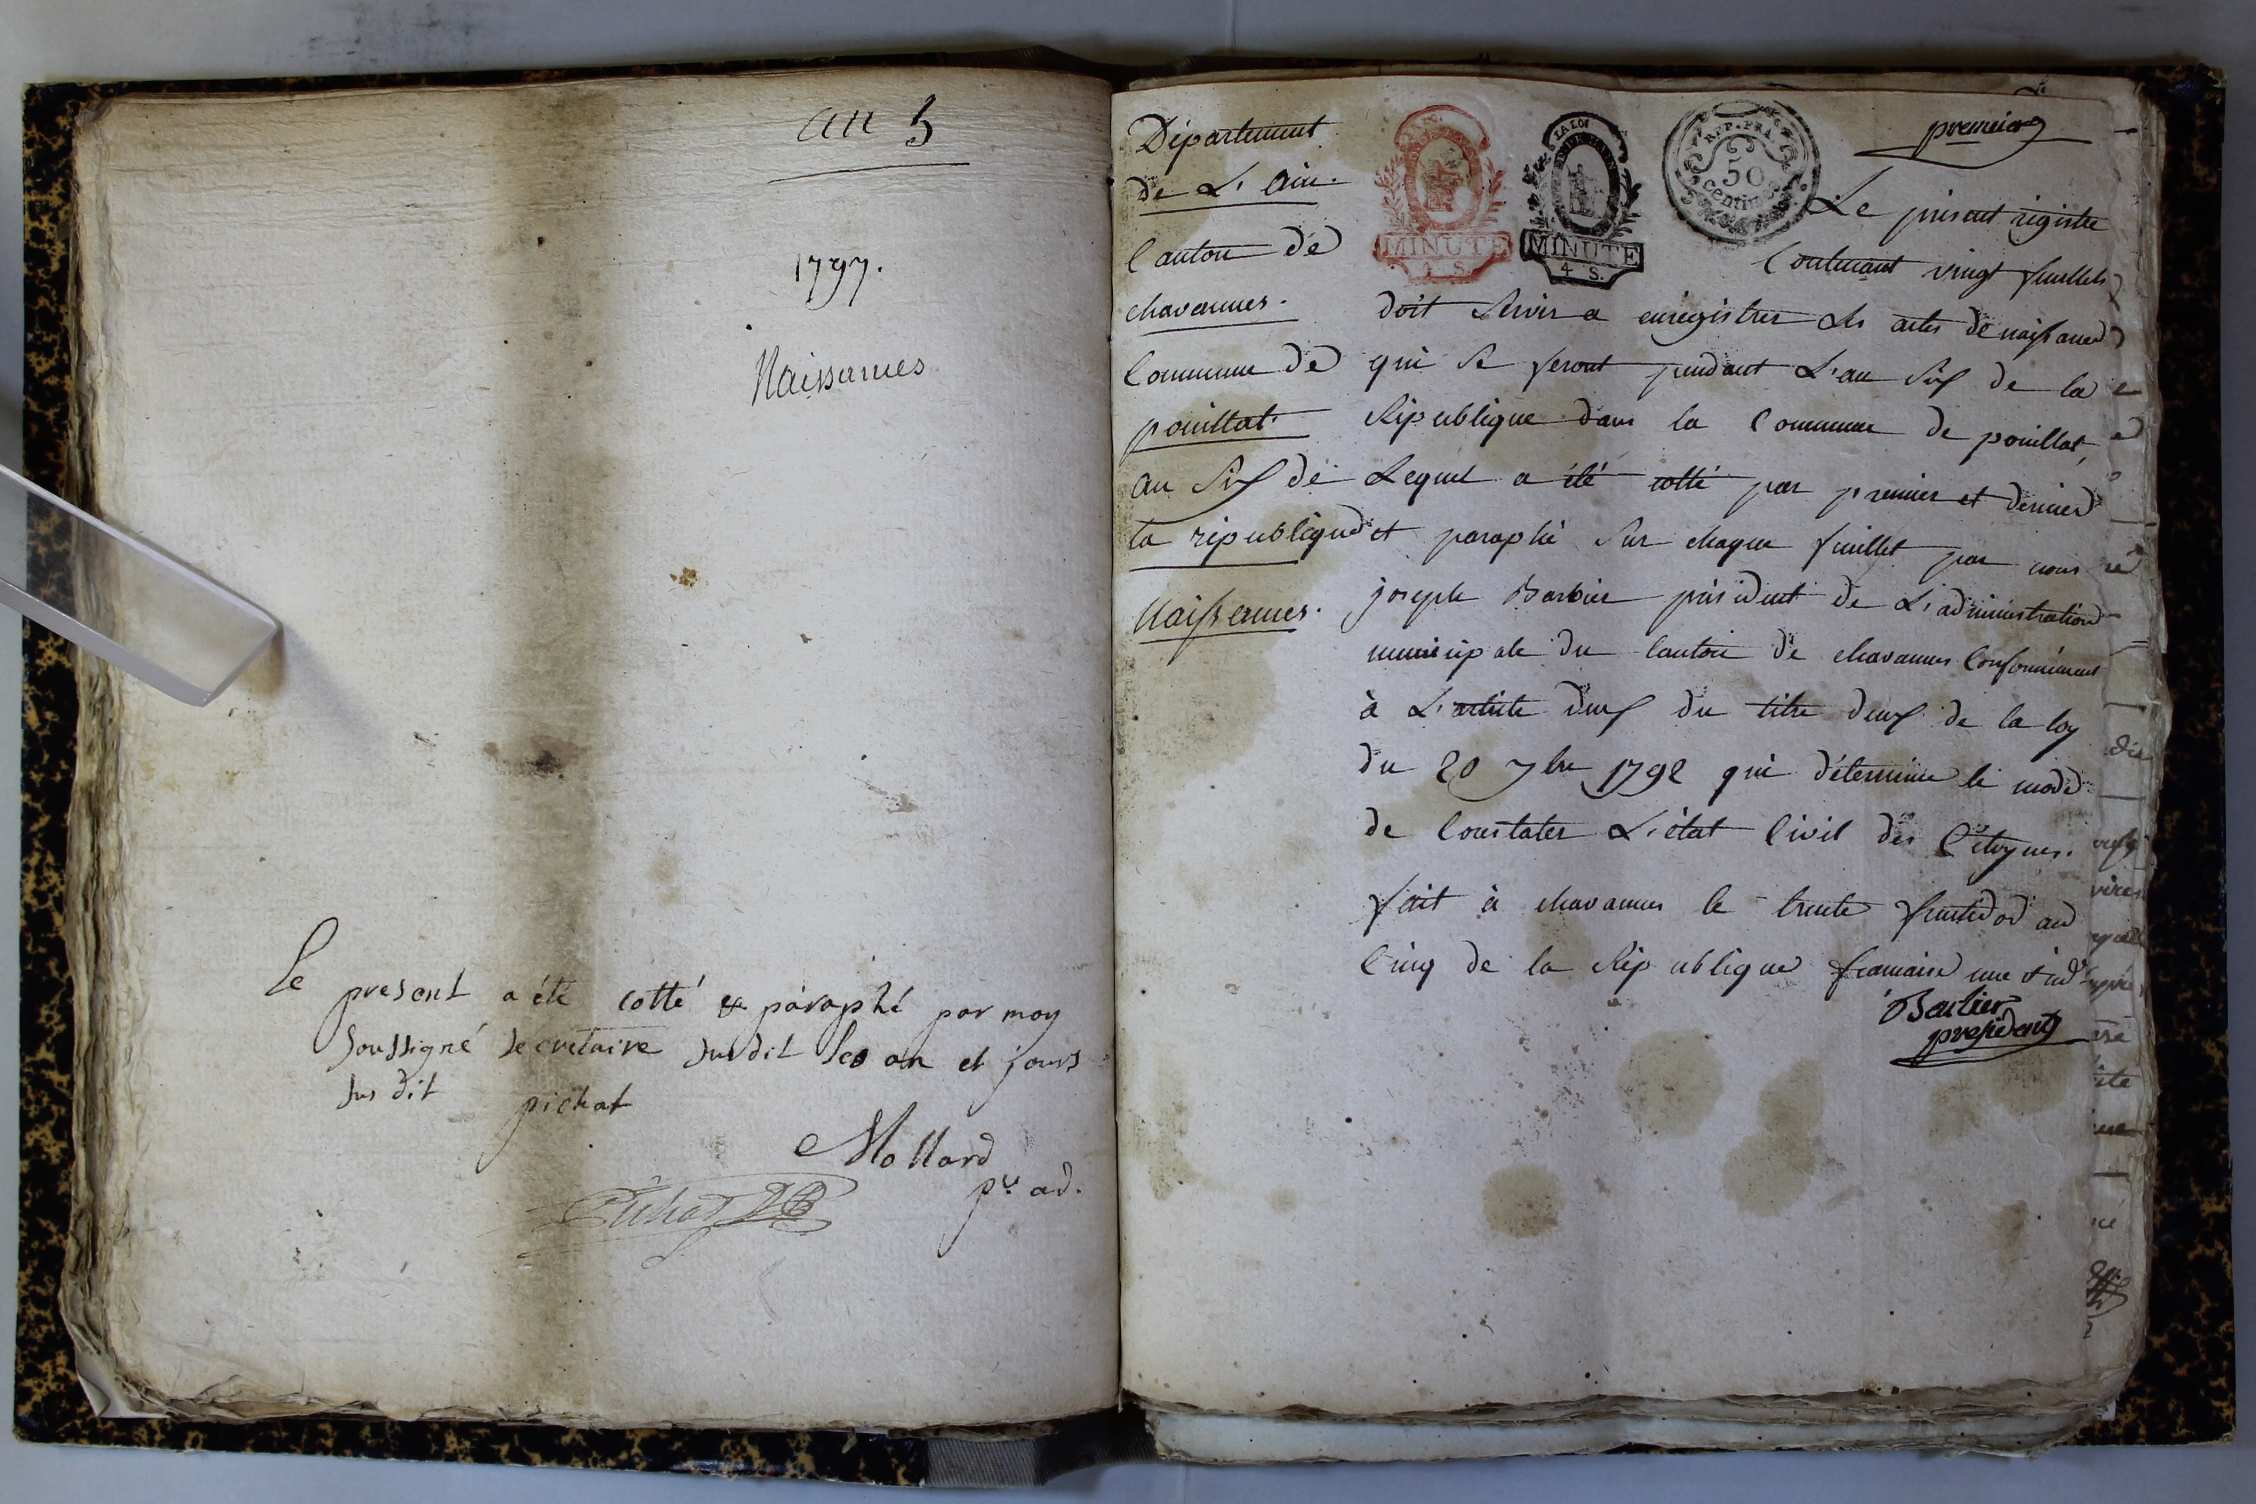 an 5
1797.
Naissances
Le present a été cotté & paraphé par moy
Soussigné Secretaire susdit les an et jours
sus dit pichat
Mollard
pt. ad.
Pichat
Département
de L'ain.
Canton de
chavannes.
Commune de
pouillat
an Six de
la république
Naissances.
LA LOI
MINUTE
4 S.
LA LOI
MINUTE
4 S.
REP. FRA
50
centimes
premier
Le présent régistre
Contenant vingt feuillets
doit Servir a enrégistrer les actes de naissances
qui se feront pendant L'an Six de la
République dans la Commune de pouillat,
Lequel a été cotté par premier et dernier
et paraphé Sur chaque feuillet par nous
joseph Barbier président de L'administration
municipale du Canton de chavannes Conformément
à L'article deux du titre deux de la loy
du 20 7bre 1792 qui détermine le mode
de Constater L'état Civil des Citoyens.
fait à chavannes le trente fructidor an
Cinq de la République francaise une & ind.
Barbier
president